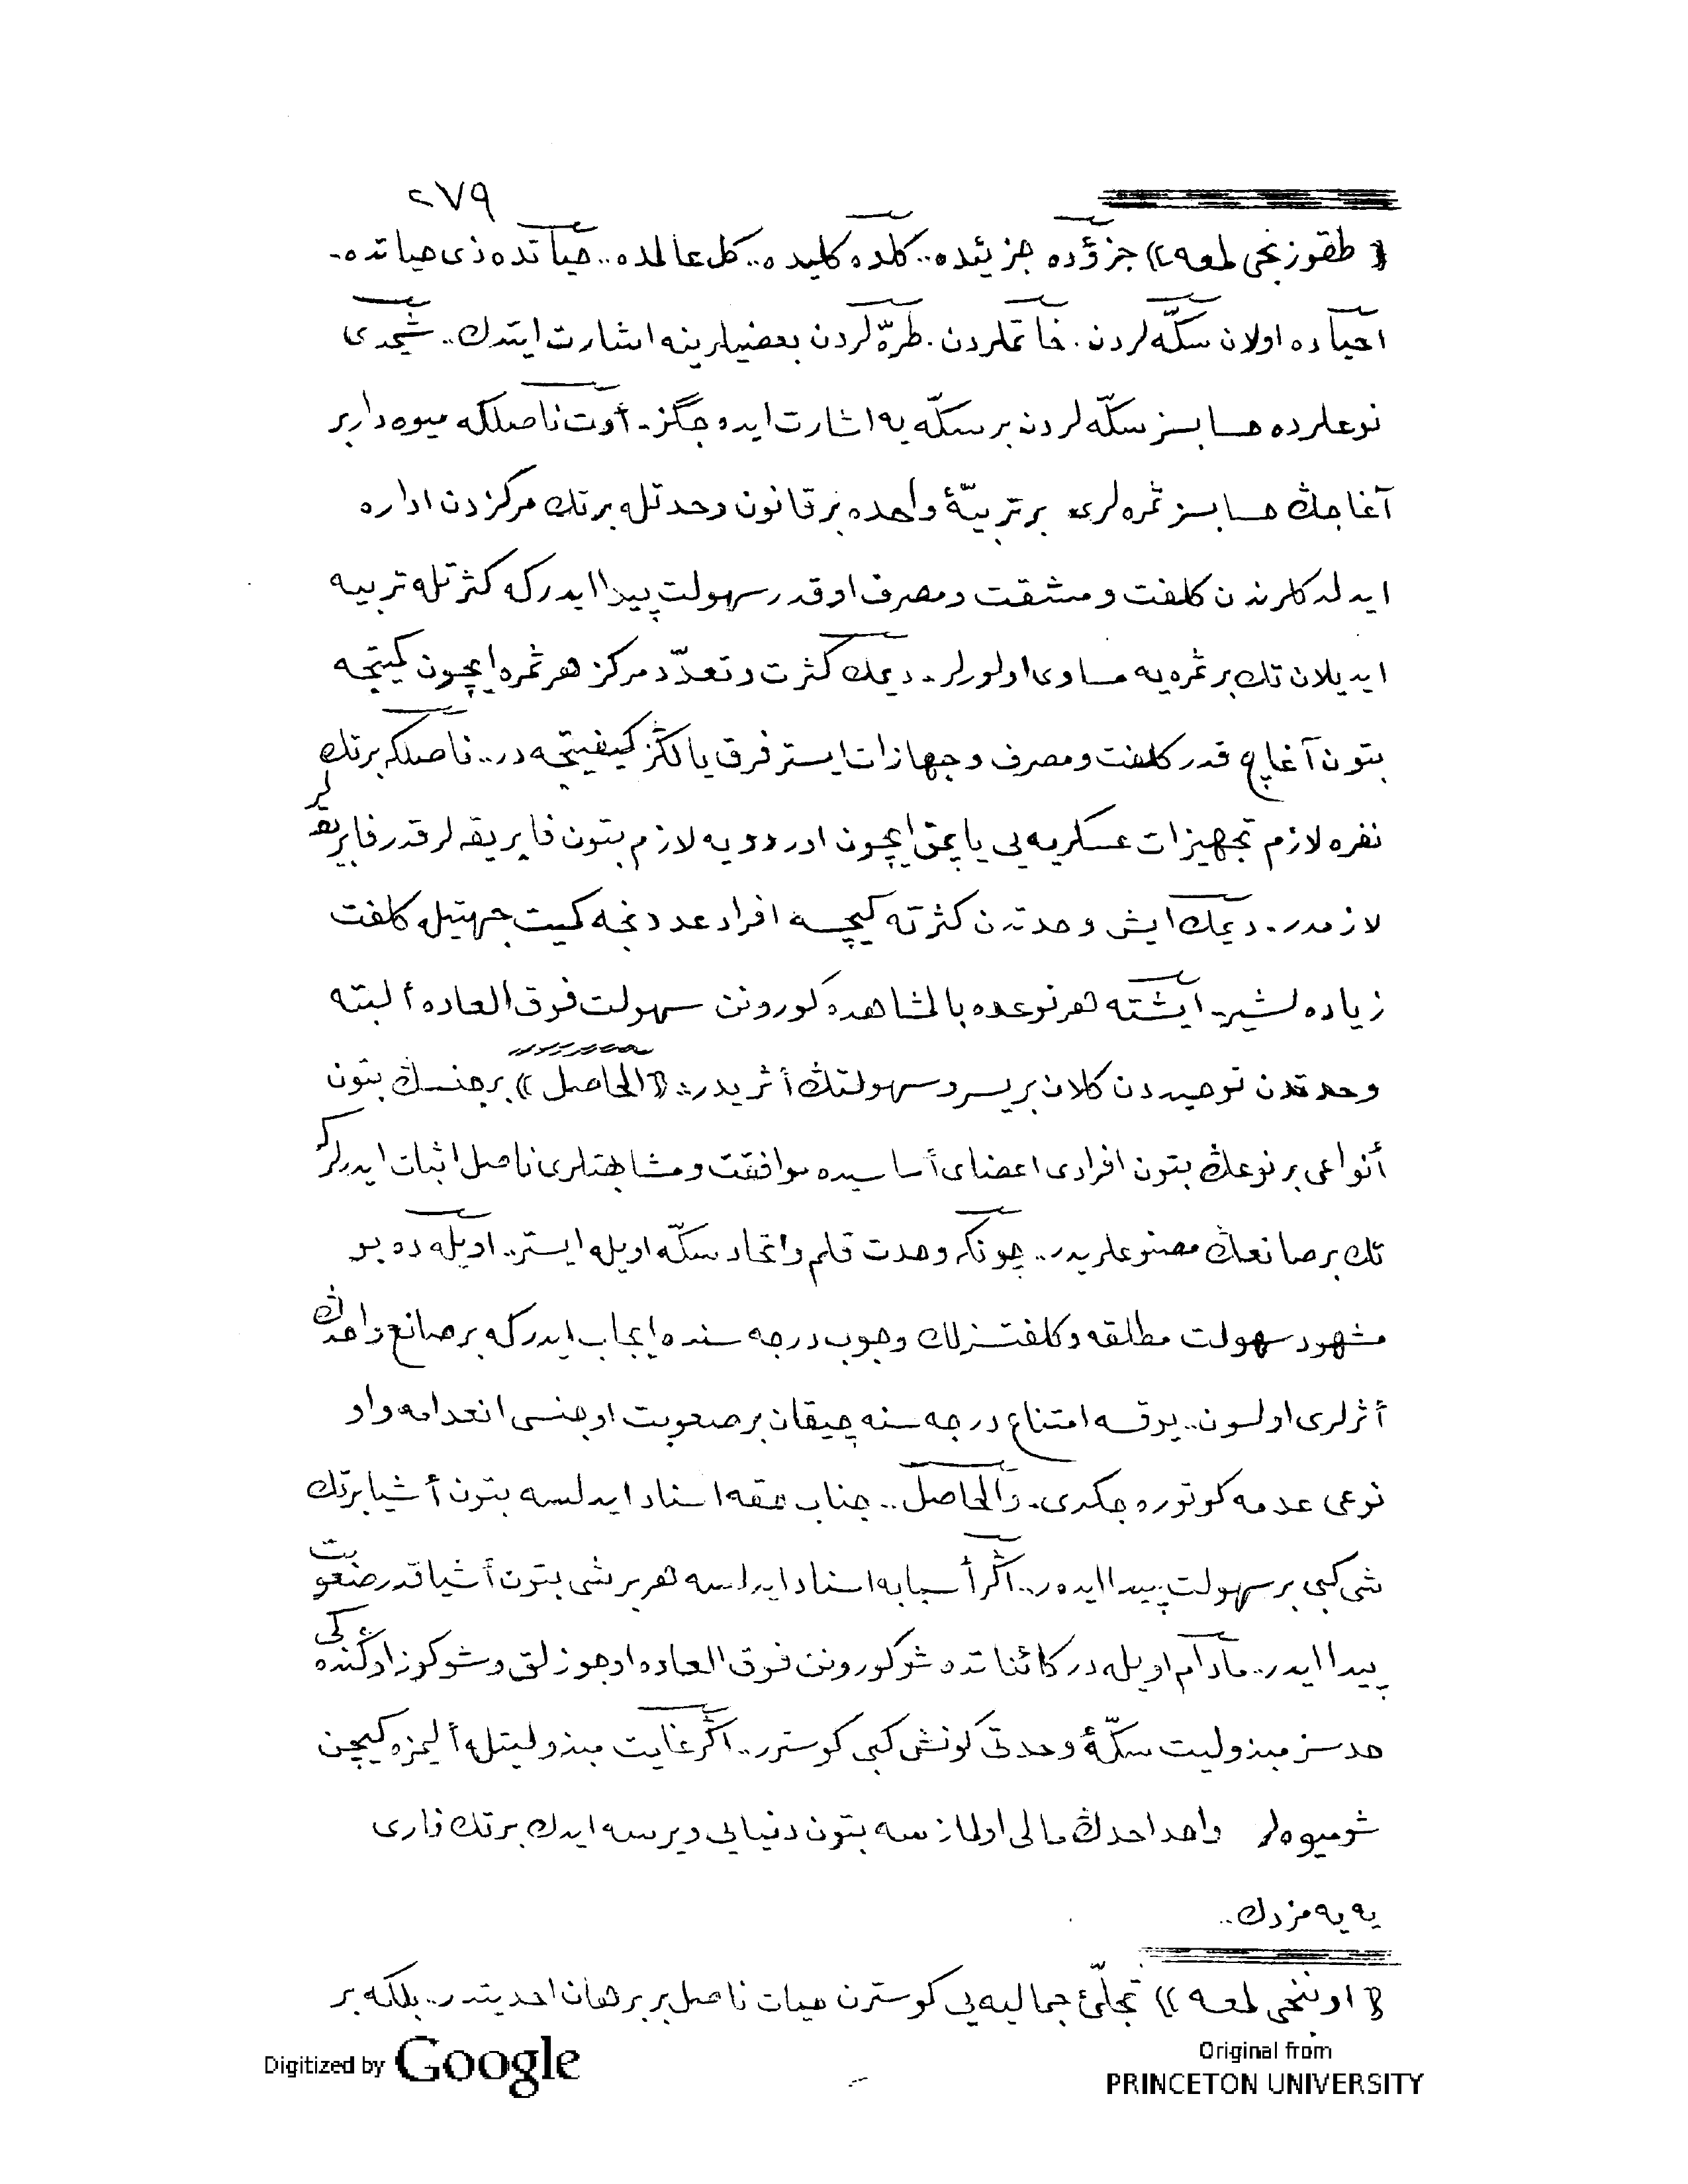 ٢٧٩
﴿ طقوزنجی لمعه ﴾ جزؤده جزئیده.. كلده كلیده.. كل عالمده.. حیاتده ذی حیاتده.
احیاده اولان سكّه لردن. خاتملردن. طرّه لردن بعضیلرینه اشارت ایتدك.. شیمدی
نوعلرده حسابسز سكّه لردن بر سكّه یه اشارت ایده جگز. أوت ناصلكه میوه دار بر
آغاجڭ حسابسز ثمره لری بر تربیهٔ واحده بر قانون وحدتله بر تك مركزدن اداره
ایدلدكلرندن كلفت و مشقت و مصرف اوقدر سهولت پیدا ایدركه كثرتله تربیه
ایدیلان تك بر ثمره یه مساوی اولورلر. دیمك كثرت و تعدّد مركز هر ثمره ایچون كمیتجه
بتون آغاج قدر كلفت و مصرف و جهازات ایستر فرق یالڭز كیفیتجه در.. ناصلكه بر تك
نفره لازم تجهیزات عسكریه یی یاپمق ایچون اوردویه لازم بتون فابریقه لر قدر فابریقه لر
لازمدر. دیمك ایش وحدتدن كثرته كیچسه افراد عددنجه كمیت جهتیله كلفت
زیاده لشیر. ایشته هر نوعده بالمشاهده كورونن سهولت فوق العاده ألبته
وحدتدن توحیددن كلان بر یسر و سهولتڭ أثریدر: ﴿ الحاصل ﴾ بر جنسڭ بتون
أنواعی بر نوعڭ بتون افرادی اعضای أساسیده موافقت و مشابهتلری ناصل اثبات ایدرلركه
تك بر صانعڭ مصنوعلریدر.. چونكه وحدت قلم و اتحاد سكّه اویله ایستر.. اویله ده بو
مشهود سهولت مطلقه و كلفتسزلك وجوب درجه سنده ایجاب ایدركه بر صانع واحدڭ
أثرلری اولسون.. یوقسه امتناع درجه سنه چیقان بر صعوبت او جنسی انعدامه و او
نوعی عدمه كوتوره جكدی. والحاصل.. جناب حقه اسناد ایدلسه بتون أشیا بر تك
شی كبی بر سهولت پیدا ایدر.. أڭر أسبابه اسناد ایدلسه هر بر شی بتون أشیا قدر صعوبت
پیدا ایدر.. مادام اویله در كائناتده شو كورونن فوق العاده اوجوزلق و شو كوز اوڭنده كی
حدسز مبذولیت سكّهٔ وحدتی كونش كبی كوسترر.. أڭر غایت مبذولیتله ألیمزه كیچن
شو میوه لر واحد احدڭ مالی اولمازسه بتون دنیایی ویرسه ایدك بر تك ناری
یه یه مزدك..
﴿ اوننجی لمعه ﴾ تجلّئ جمالیه یی كوسترن حیات ناصل بر برهان احدیتدر.. بلكه بر
Digitized by Google
Original from
PRINCETON UNIVERSITY